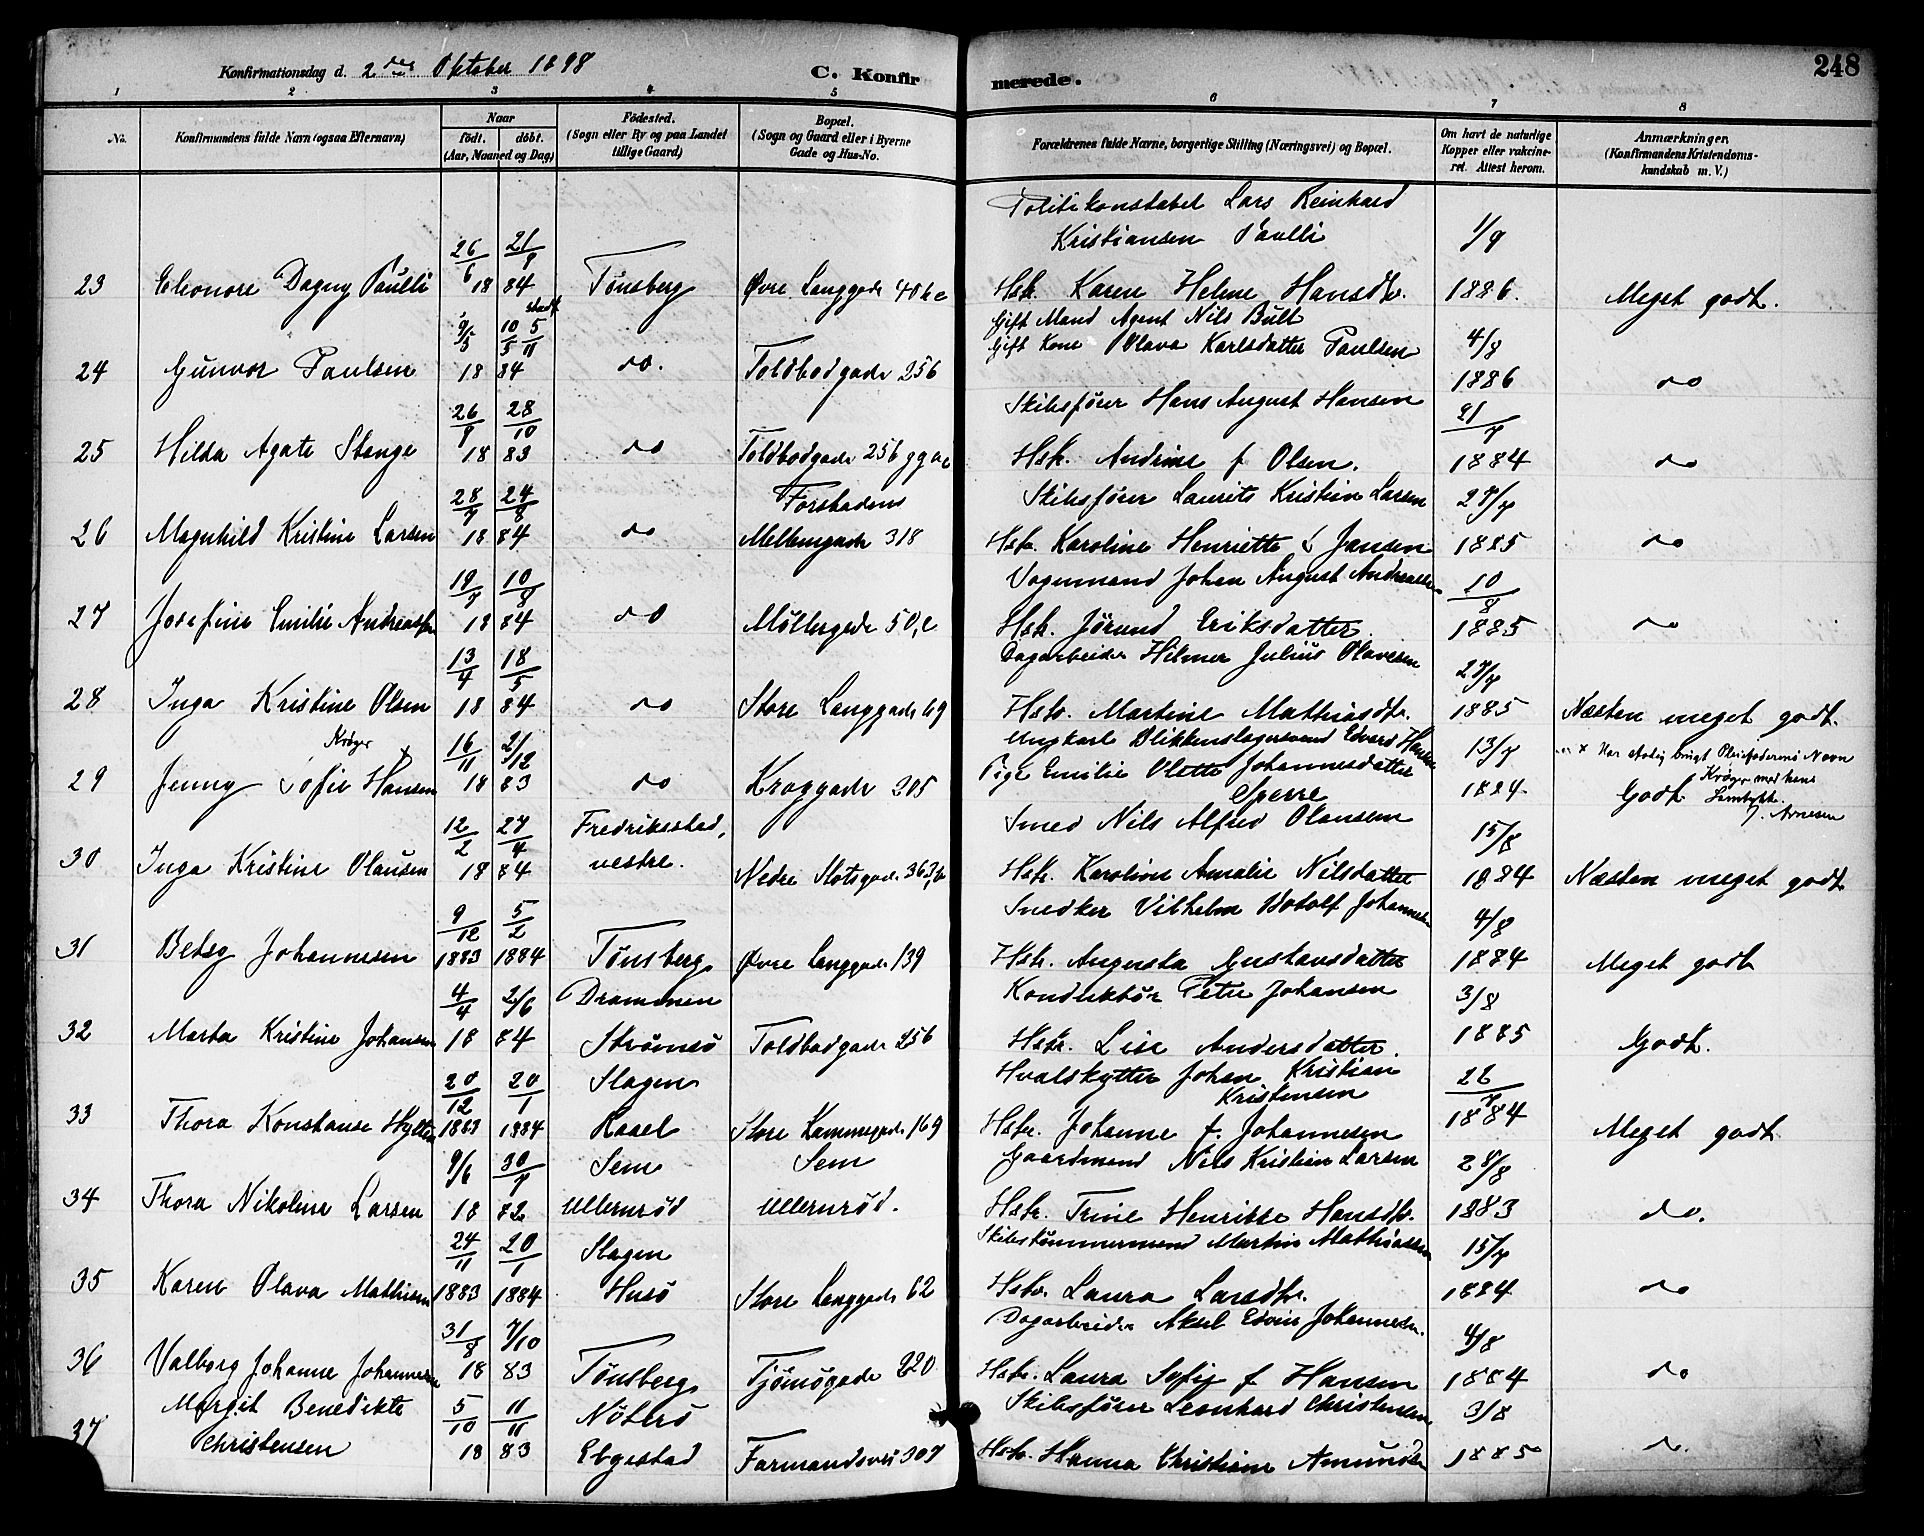 Konfirmationsdag d. 2den Oktober 1898
C. Konfirmerede.
248
1 2 3 4 5 6 7 8
No.
Konfirmandens fulde Navn (ogsaa Efternavn)
Naar
født. døbt.
(Aar, Maaned og Dag)
Fødested.
(Sogn eller By og paa Landet
tillige Gaard)
Bopæl.
(Sogn og Gaard eller i Byerne
Gade og Hus-No.
Forældrenes fulde Navne, borgerlige Stilling (Næringsvei) og Bopæl.
Om havt de naturlige
Kopper eller vakcine-
ret. Attest herom.
Anmærkninger.
(Konfirmandens Kristendoms-
kundskab m. V.)
Politikonstabel Lars Reinhard
Kristiansen Paulli 1/9
26/6 21/9
23 Eleonore Dagny Paulli 18 84 Tønsberg Øvre Langgade 40 Hst. Karen Helene Hansdtr. 1886. Meget godt.
9/5 10/5 5/11 Gift Mand Agent Nils Bull
Gift Kone Olava Karlsdatter Paulsen 4/8
24 Gunvor Paulsen 18 84 do. Toldbodgade 256 1886 do
26/9 28/10 Skibsfører Hans August Hansen 21/7
25 Hilda Agate Stange 18 83 do Toldbodgade 256 Hst. Andrine f Olsen. 1884 do
28/7 24/8 Forstadens Skibsfører Laurits Kristian Larsen 27/7
26 Magnhild Kristine Larsen 18 84 do Mellemgade 318 Hst. Karoline Henriette f Jansen 1885 do
19/7 10/8 Vognmand Johan August Andreassen 10/8
27 Josefine Emilie Andreassen 18 84 do Møllergade 50,c Hst. Jørund Eriksdatter 1885 do
13/4 18/5 Dagarbeider Hilmer Julius Olavesen 27/7
28 Inga Kristine Olsen 18 84 do Store Langgade 69 Hst. Martine Mathiasdtr. 1885 Næsten meget godt.
Krøger x 16/11 21/12 Ungkarl Blikkenslagersvend Edvard Hansen 13/7 x Har stadig brugt Pleiefaderens Navn
29 Jenny Sofie Hansen 18 83 do Kroggade 205 Pige Emilie Olette Johannesdatter 1884 Godt Krøger med hans
Sperre Samtykke.
Arnesen
12/2 27/4 Fredriksstad, Smed Nils Alfred Olausen 15/8
30 Inga Kristine Olausen 18 84 vestre. Nedre Slotsgade 363,b Hst. Karoline Amalie Nilsdatter 1884 Næsten meget godt
9/12 5/2 Snedker Vilhelm Johannesen 4/8
31 Betsy Johannesen 1883 1884 Tønsberg Øvre Langgade 139 Hst. Augusta Gustavsdatter 1884 Meget godt
4/4 2/6 Drammen Konduktør Peter Johansen 3/8
32 Marta Kristine Johansen 18 84 Strømsø Toldbodgade 256 Hst. Lise Andersdatter. 1885 Godt.
20/12 20/1 Slagen Hvalskytter Johan Kristian 26/7
Kristensen
33 Thora Konstanse 1883 1884 Store Kammegade 169 Hst. Johanne f. Johannesen 1884 Meget godt
9/6 30/7 Sem Sem Gaardmand Nils Kristian Larsen 28/8
34 Thora Nikoline Larsen 18 82 Ullernrød Ullernrød. Hst. Trine Henrikke Hansdtr. 1883 do.
24/11 20/1 Slagen Skibstømmermand Martin Mathisen 15/7
35 Karen Olava Mathisen 1883 1884 Husø Store Langgade 62 Hst. Laura Larsdtr. 1884 do
31/8 7/10 Dagarbeider Aksel Edvin Johannesen. 4/8
36 Valborg Johanne Johannesen 18 83 Tønsberg Tjømøgade 220 Hst. Laura Sofie f Hansen 1884 do
Margit Benedikte 5/10 11/11 Nøterø Skibsfører Leonhard Christensen 3/8
37 Christensen 18 83 Elgestad Farmandsvei 307 Hst. Hanna Christiane Amundsen 1885 do.